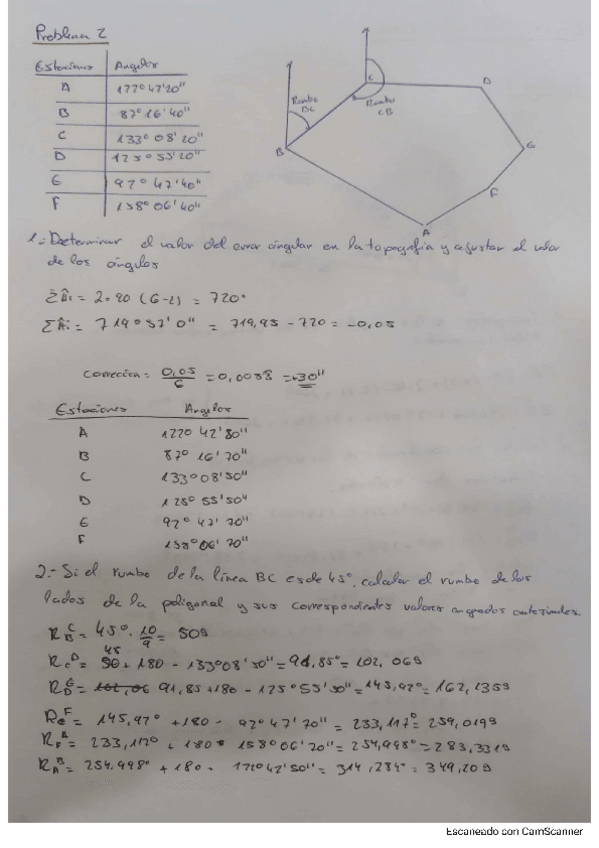 Problema 2
Estaciones Angulos
A 122° 42' 20"
B 87° 16' 40"
C 133° 08' 20"
D 125° 55' 20"
E 92° 47' 40"
F 158° 06' 40"
C
D
Rumbo BC
Rumbo CB
B
E
F
A
1.- Determinar el valor del error angular en la topografia y ajustar el valor
de los ángulos
ΣÂi = 2·90 (6-2) = 720°
ΣÂi = 719° 57' 0" = 719,95 - 720 = -0,05
Corrección = 0,05/6 = 0,0083 = 30"
Estaciones Angulos
A 122° 42' 50"
B 87° 16' 70"
C 133° 08' 50"
D 125° 55' 50"
E 92° 47' 70"
F 158° 06' 70"
2.- Si el rumbo de la línea BC es de 45°, calcular el rumbo de los
lados de la poligonal y sus correspondientes valores angados
R_B^C = 45° · 10/9 = 50g
R_C^D = 45 + 180 - 133° 08' 50" = 91,85° = 102,06g
R_D^E = 91,85 + 180 - 125° 55' 50" = 145,92° = 162,135g
R_E^F = 145,92° + 180 - 92° 47' 70" = 233,117° = 259,019g
233,117° + 180 - 158° 06' 70" = 254,998° = 283,331g
R_A^B = 254,998° + 180 - 122° 42' 50" = 314,284° = 349,20g
Escaneado con CamScanner